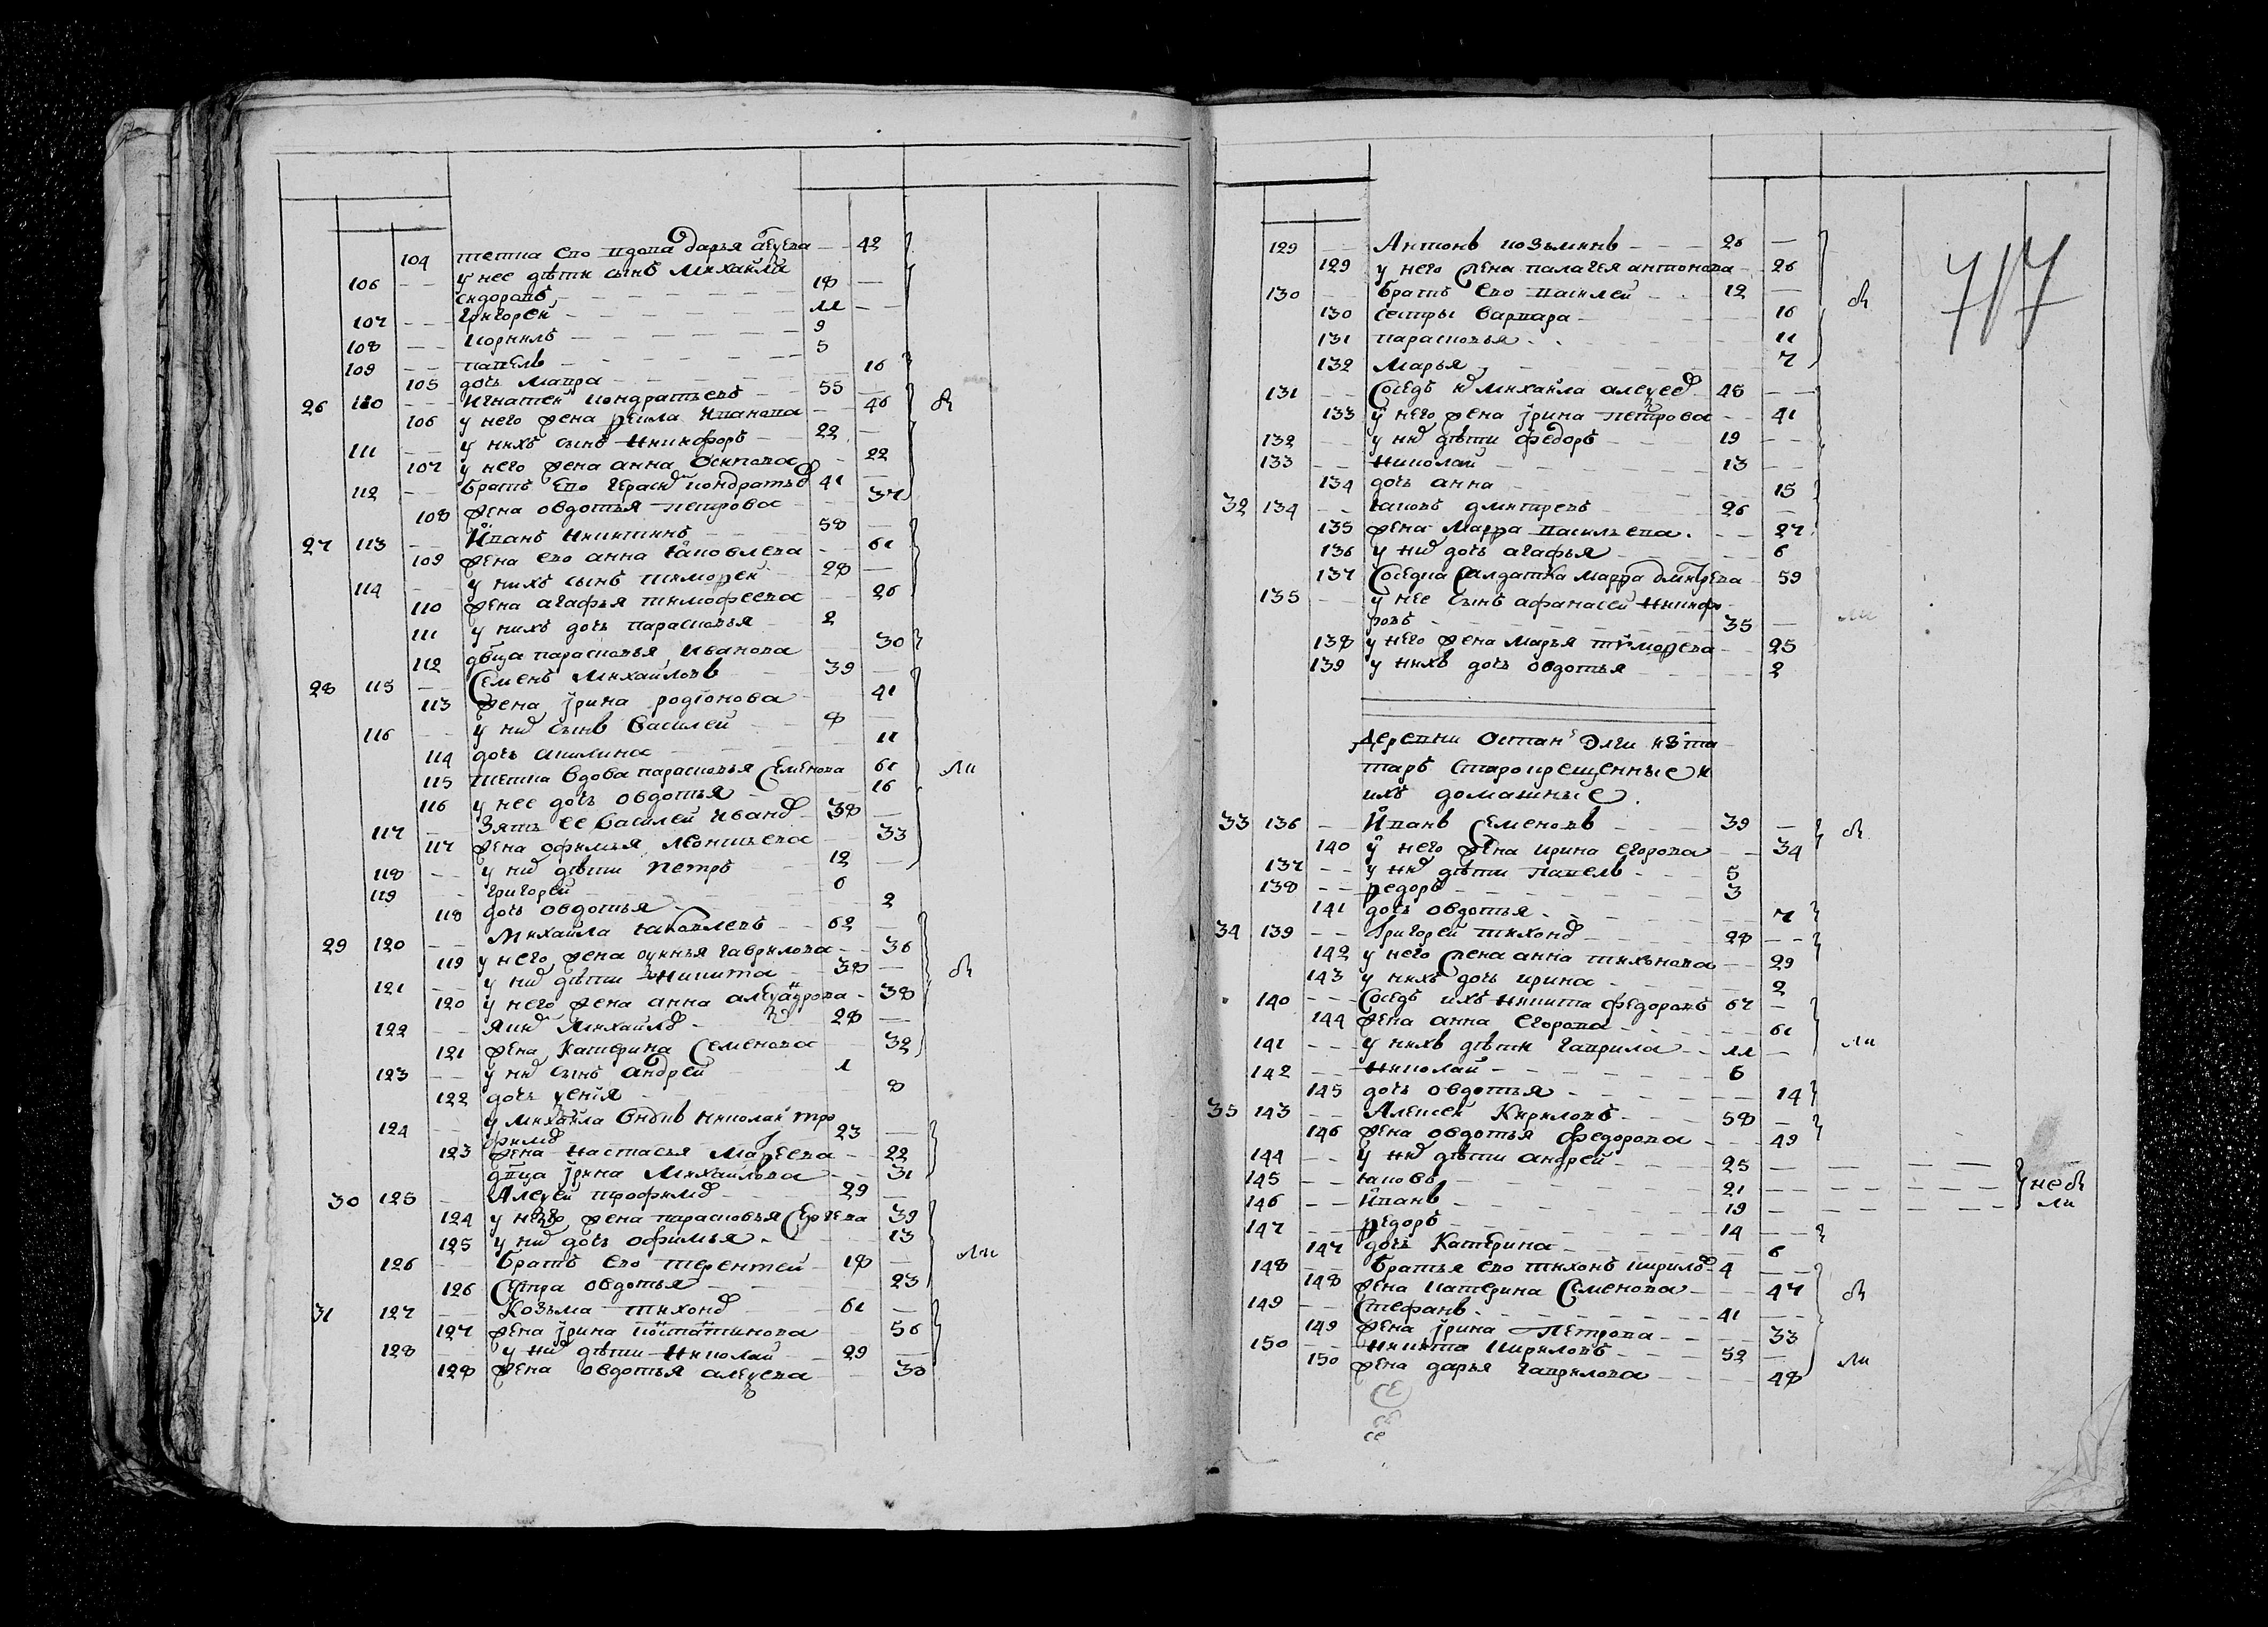 104 тетка ево вдова дарья алеѯева — 42
106 — у нее дѣти сынъ Михайла
сидоровъ — 18 —
107 — Григорей — 11 —
108 — корнилъ — 9
109 — павелъ — 5
105 дочь мавра — 16
26 110 — Игнатей кондратьевъ — 55 — вы
106 у него жена ѳекла Иванова — 46
111 — у нихъ сынъ Никифоръ — 22 —
107 у него жена анна осипова — 22
112 — братъ ево герасим кондратьев 41 —
108 жена овдотья петрова — 37
27 113 — Иванъ Никитинъ — 58 —
109 жена ево анна яковлева — 61
114 — у нихъ сынъ тимоѳей — 28 —
110 жена агафья тимофеева — 26
111 у нихъ дочь парасковья 2
112 двца парасковья Иванова 30
28 115 — Семенъ Михайловъ 39 —
113 жена ірина родіонова 41
116 — у них сынъ василей — 8 —
114 дочь акилина — 11
115 тетка вдова парасковья Семенова 61 ли
116 у нее дочь овдотья — 16
117 — Зять ее василей иванов 38 —
117 жена офимья леонтьева 33
118 — у них дѣти Петръ 12 —
119 — григорей — 6
118 дочь овдотья — 2
29 120 — Михайла яковлевъ — 62 —
119 у него жена ѳукнья гаврилова — 36
121 — у них дѣти Никита — 38 — вы
120 у него жена анна алеѯадрова — 38
122 — яким Михайлов — 28 —
121 жена катерина Семенова 32
123 — у них сынъ андрей — 1
122 дочь ѯенія — 8
124 — у михайла Никола тро
фимов 23 —
123 жена настасья Маѳеева — 22
двца ірина Михайлова — 31
30 125 — Алеѯей трофимов — 29 —
124 у него жена парасковья Сергева 39
125 у них дочь офимья — 13
126 — братъ ево терентей — 18 — ли
126 Сестра овдотья — 23
31 127 — Козьма тихонов — 61 —
127 жена ірина костатинова 56
128 — у них дѣти Николай — 29 —
128 жена овдотья алеѯева — 30
129 — Антонъ козьминъ — 26 —
129 у него жена палагея антонова — 26
130 — братъ ево василей — 12 — вы
130 сестры варвара — 16
131 парасковья — 11
132 Марья — 7
131 — Соседъ их михайла алеѯеев — 48 —
133 у него жена ірина петрова — 41
132 — у них дѣти федоръ — 19 —
133 — Николай — 13 —
134 дочь анна — 15
32 134 — яковъ дмитревъ — 26 —
135 жена марѳа васильева — 27
136 у них дочь агафья — 6
137 Соседка Салдатка марѳа дмитрева — 59
135 — у нее сынъ афанасей Никифо
ровъ — 35 — ли
138 у него жена марья тимоѳева — 25
139 у нихъ дочь овдотья — 2
деревни
таръ старокрещенные и
ихъ домашные
33 136 — Иванъ Семеновъ — 39 — вы
140 у него жена ирина егорова — 34
137 — у них дѣти павелъ — 5
138 — ѳедоръ — 3
141 дочь овдотья — 7
34 139 — Григорей тихонов — 28 —
142 у него жена анна тихонова — 29
143 у нихъ дочь ирина — 2
140 — Соседъ ихъ никита федоровъ 67 —
144 жена анна егорова — 61
141 — у нихъ дѣти гаврила — 11 — ли
142 — Николай — 6
145 дочь овдотья — 14
35 143 — Алексей Кириловъ — 58 —
146 жена овдотья федорова — 49
144 — у них дѣти андрей — 25 —
145 — яковъ — 21 — не вы
146 — Иванъ — 19 — ли
147 — ѳедоръ — 14 —
147 дочь катерина — 6
148 — братья ево тихонъ кирилов 4 —
148 жена катерина Семенова — 47 вы
149 — Стефанъ — 41 —
149 жена ірина петрова — 33
150 — никита кириловъ — 52 —
150 жена дарья гаврилова — 48 ли
717
се
се